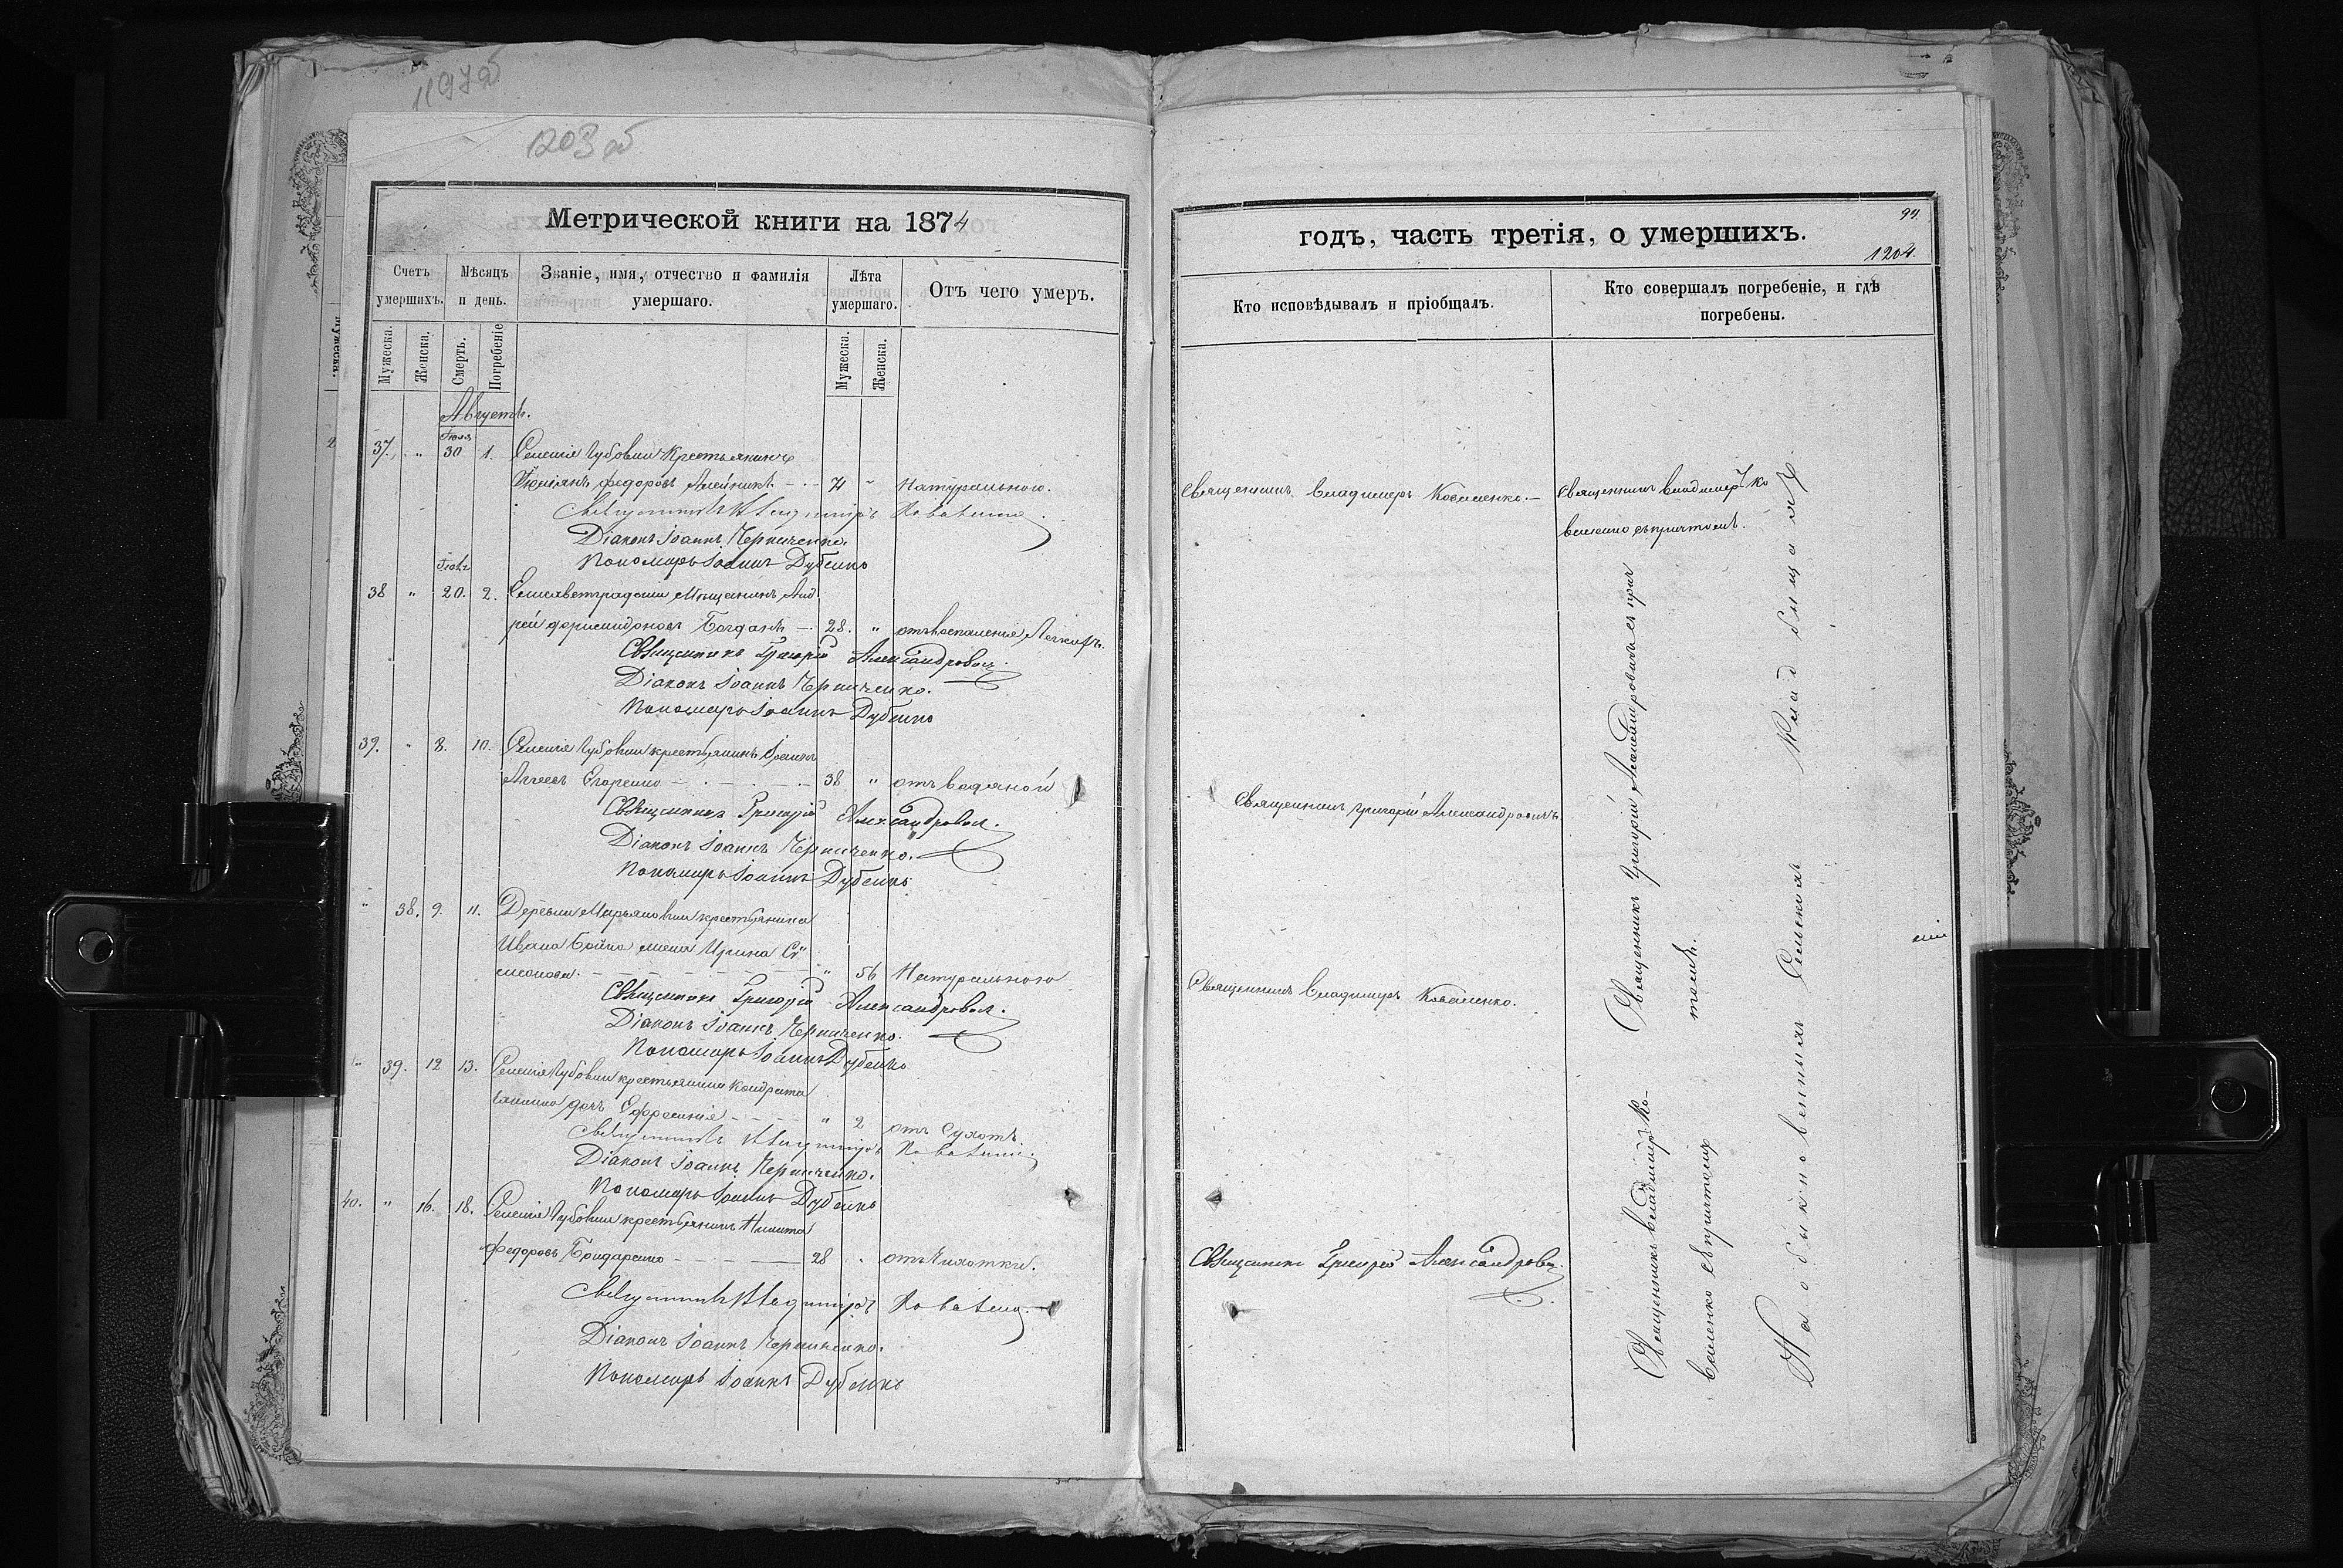 1197об
1203об
Метрической книги на 1874
Счетъ умершихъ.
Мѣсяцъ и день.
Званіе, имя, отчество и фамилія умершаго.
Лѣта умершаго.
Отъ чего умеръ.
Мужеска.
Женска.
Смерть.
Погребеніе
Мужеска.
Женска.
Августъ.
Іюля
37. " 30 1. Селенія Губовки Крестьянинъ
Федоровъ Алейникъ - 71 " Натурального.
Священникъ Владиміръ Коваленко
Діаконъ Іоаннъ Черниченко.
Пономарь Іоаннъ Дубенко
38 " 20. 2. Елисаветградскій Мѣщанинъ Анд
рей Богданъ - 28. " отъ воспаленія Легкихъ.
Священникъ Григорій Александровъ
Діаконъ Іоаннъ Черниченко.
Пономарь Іоаннъ Дубенко
39. " 8. 10. Селенія Губовки крестьянинъ
38 " отъ водяной
Священникъ Григорій Александровъ
Діаконъ Іоаннъ Черниченко.
Пономарь Іоаннъ Дубенко
" 38. 9. 11. Деревни Марьяновки крестьянина
Ивана Бойка жена Ирина Си
меонова. " 56 Натурального
Священникъ Григорій Александровъ
Діаконъ Іоаннъ Черниченко.
Пономарь Іоаннъ Дубенко
" 39. 12 13. Селенія Губовки крестьянина Кондрата
дочь " 2 отъ Сухотъ.
Священникъ Владиміръ Коваленко
Діаконъ Іоаннъ Черниченко.
Пономарь Іоаннъ Дубенко
40. " 16. 18. Селенія Губовки крестьянинъ Никита
Федоровъ Бондаренко 28 " отъ Чихотки.
Священникъ Владиміръ Коваленко
Діаконъ Іоаннъ Черниченко.
Пономарь Іоаннъ Дубенко
94.
годъ, часть третія, о умершихъ.
1204.
Кто исповѣдывалъ и пріобщалъ.
Кто совершалъ погребеніе, и гдѣ погребены.
Священникъ Владимеръ Коваленко.
Священникъ Владимеръ Ко
валенко съ причтомъ.
Священникъ Григорій Александровичъ
Священникъ Владимеръ Коваленко.
Священникъ Григорій Александровъ
Священникъ Григорій Александровичъ съ прич
томъ.
Священникъ Владимиръ Ко-
валенко съ причтомъ
На обыкновенныхъ Сельскихъ Кладбищахъ